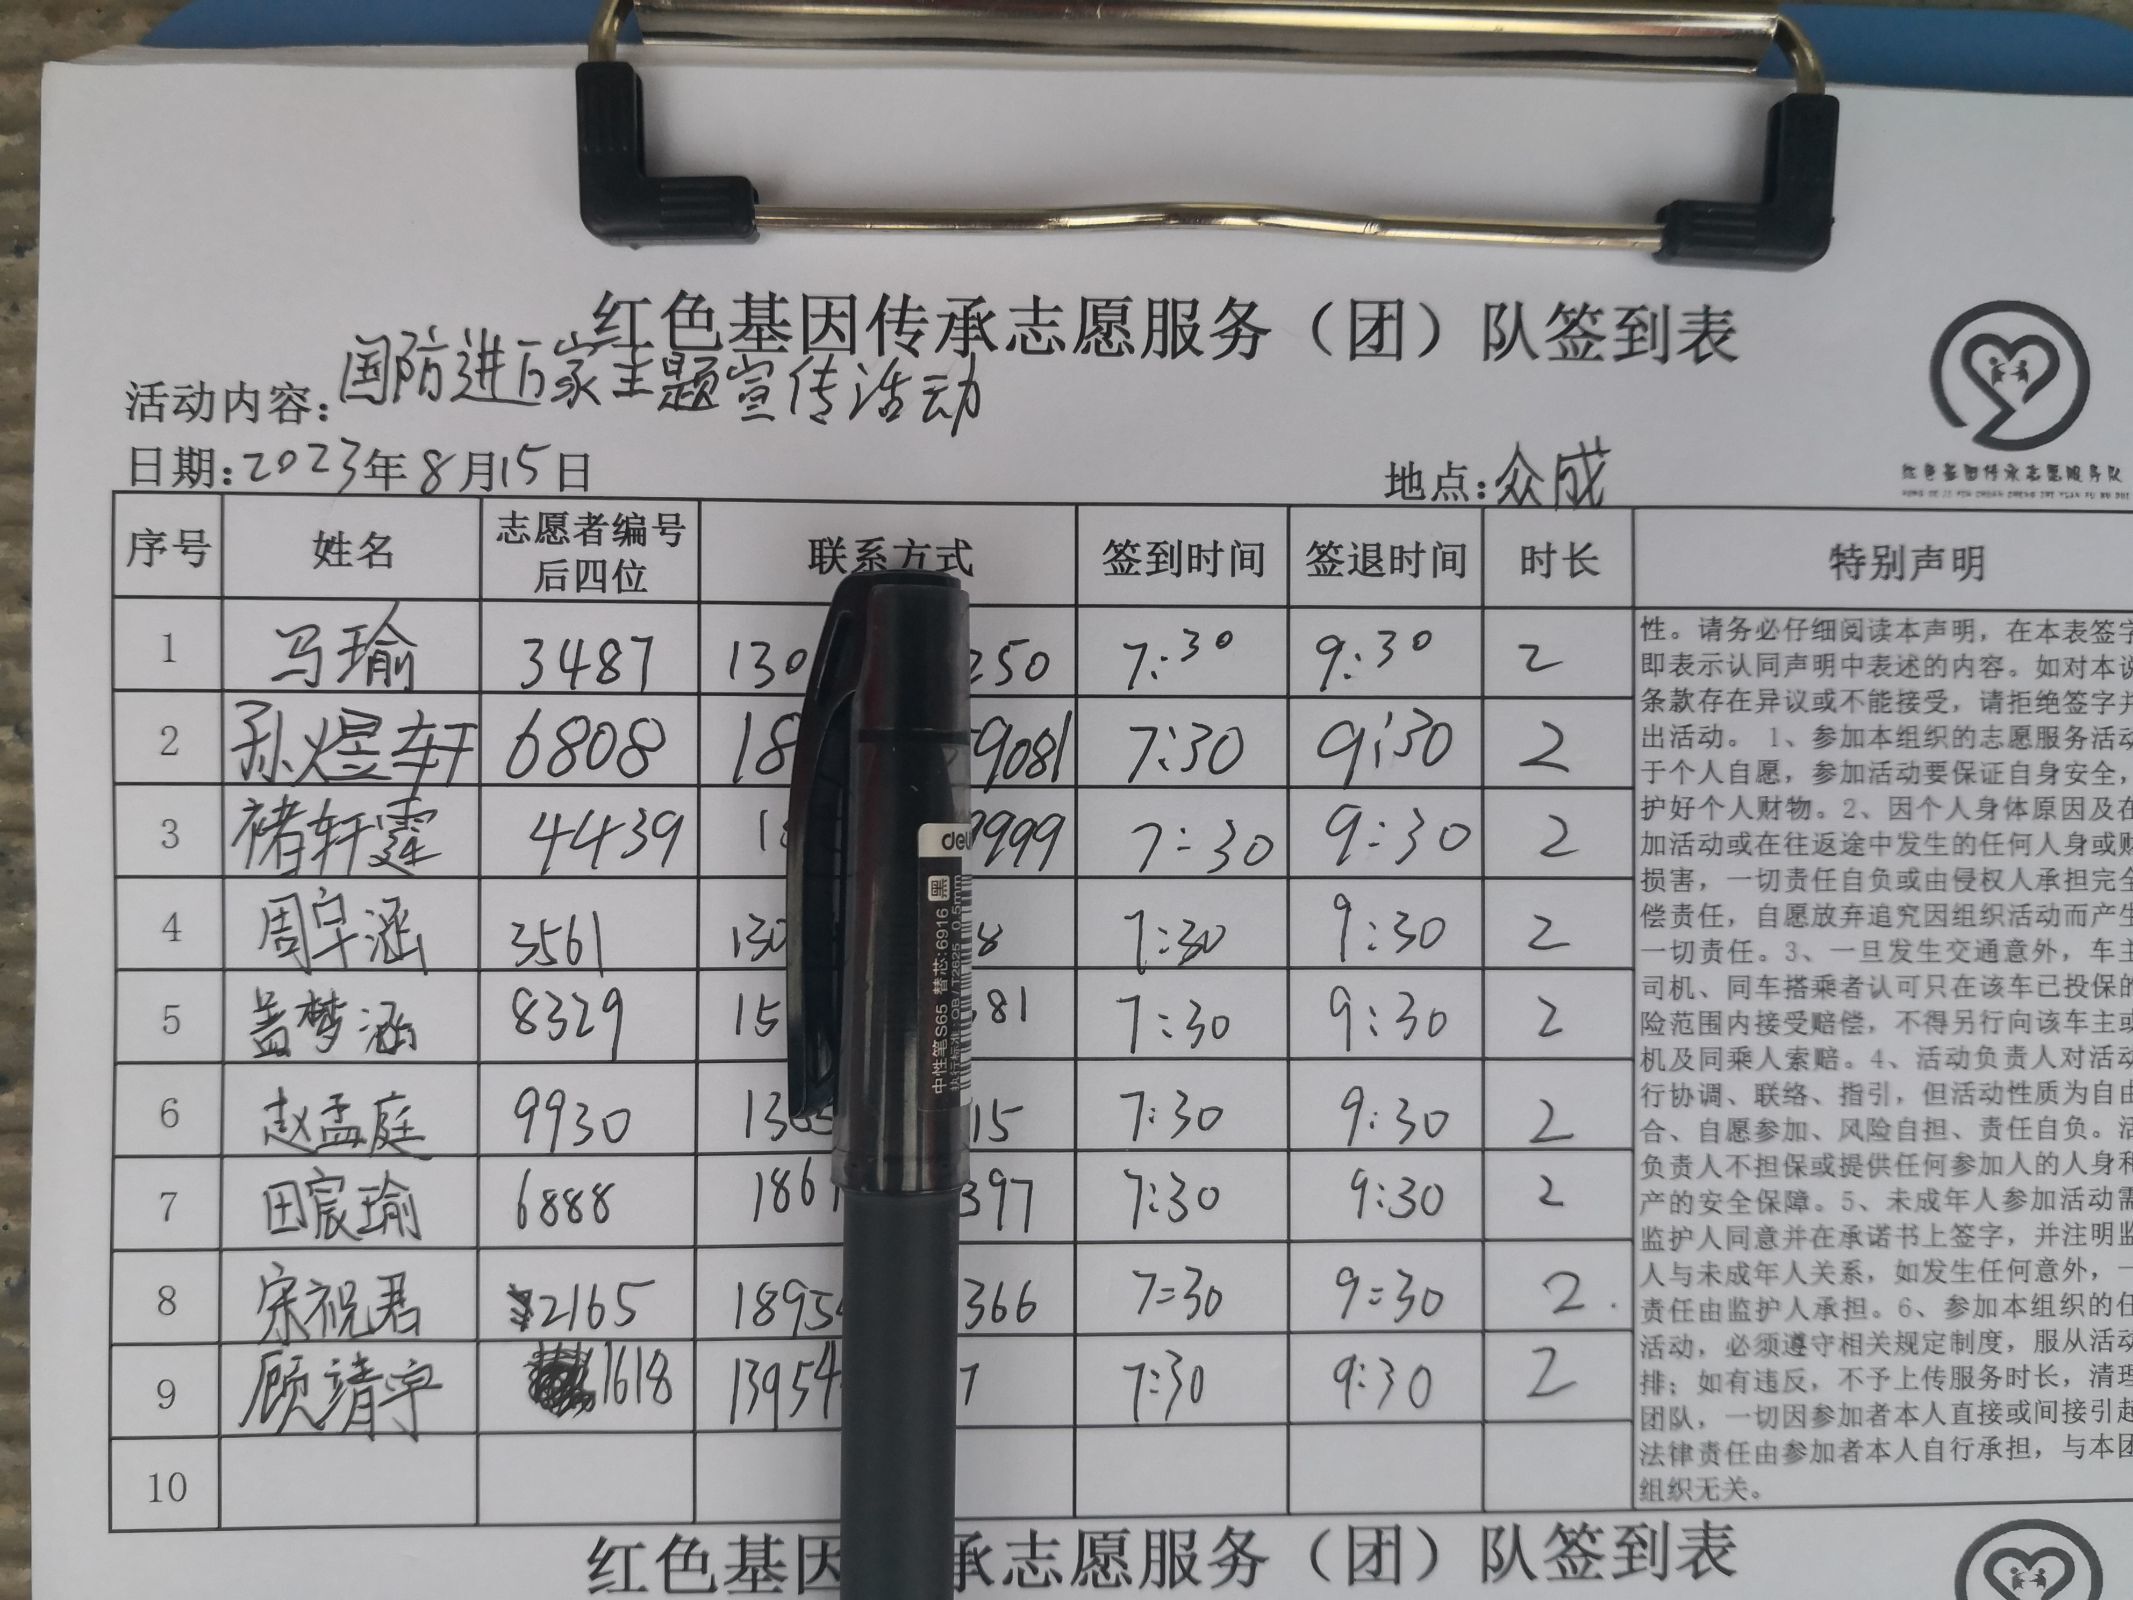 红色基因传承志愿服务（团）队签到表
活动内容：国防进万家主题宣传活动
日期：2023年8月15日 地点：众成
红色基因传承志愿服务队
序号 姓名 志愿者编号后四位 联系方式 签到时间 签退时间 时长 特别声明
1 马瑜 3487 130 250 7:30 9:30 2
2 孙煜轩 6808 18 9081 7:30 9:30 2
3 褚轩霆 4439 18 9999 7:30 9:30 2
4 周早涵 3561 130 8 7:30 9:30 2
5 盖梦涵 8329 15 81 7:30 9:30 2
6 赵孟庭 9930 13 15 7:30 9:30 2
7 田宸瑜 6888 186 397 7:30 9:30 2
8 宋祝君 2165 1895 366 7:30 9:30 2.
9 顾靖宇 1618 13954 7 7:30 9:30 2
10
性。请务必仔细阅读本声明，在本表签字
即表示认同声明中表述的内容。如对本说
条款存在异议或不能接受，请拒绝签字并
出活动。1、参加本组织的志愿服务活动
于个人自愿，参加活动要保证自身安全，
护好个人财物。2、因个人身体原因及在
加活动或在往返途中发生的任何人身或财
损害，一切责任自负或由侵权人承担完全
偿责任，自愿放弃追究因组织活动而产生
一切责任。3、一旦发生交通意外，车主
司机、同车搭乘者认可只在该车已投保的
险范围内接受赔偿，不得另行向该车主或
机及同乘人索赔。4、活动负责人对活动
行协调、联络、指引，但活动性质为自由
合、自愿参加、风险自担、责任自负。活
负责人不担保或提供任何参加人的人身和
产的安全保障。5、未成年人参加活动需
监护人同意并在承诺书上签字，并注明监
人与未成年人关系，如发生任何意外，一
责任由监护人承担。6、参加本组织的任
活动，必须遵守相关规定制度，服从活动
排；如有违反，不予上传服务时长，清理
团队，一切因参加者本人直接或间接引起
法律责任由参加者本人自行承担，与本团
组织无关。
deli
中性笔S65 替芯:6916 黑
执行标准:QB/T2625 0.5mm
红色基因 承志愿服务（团）队签到表